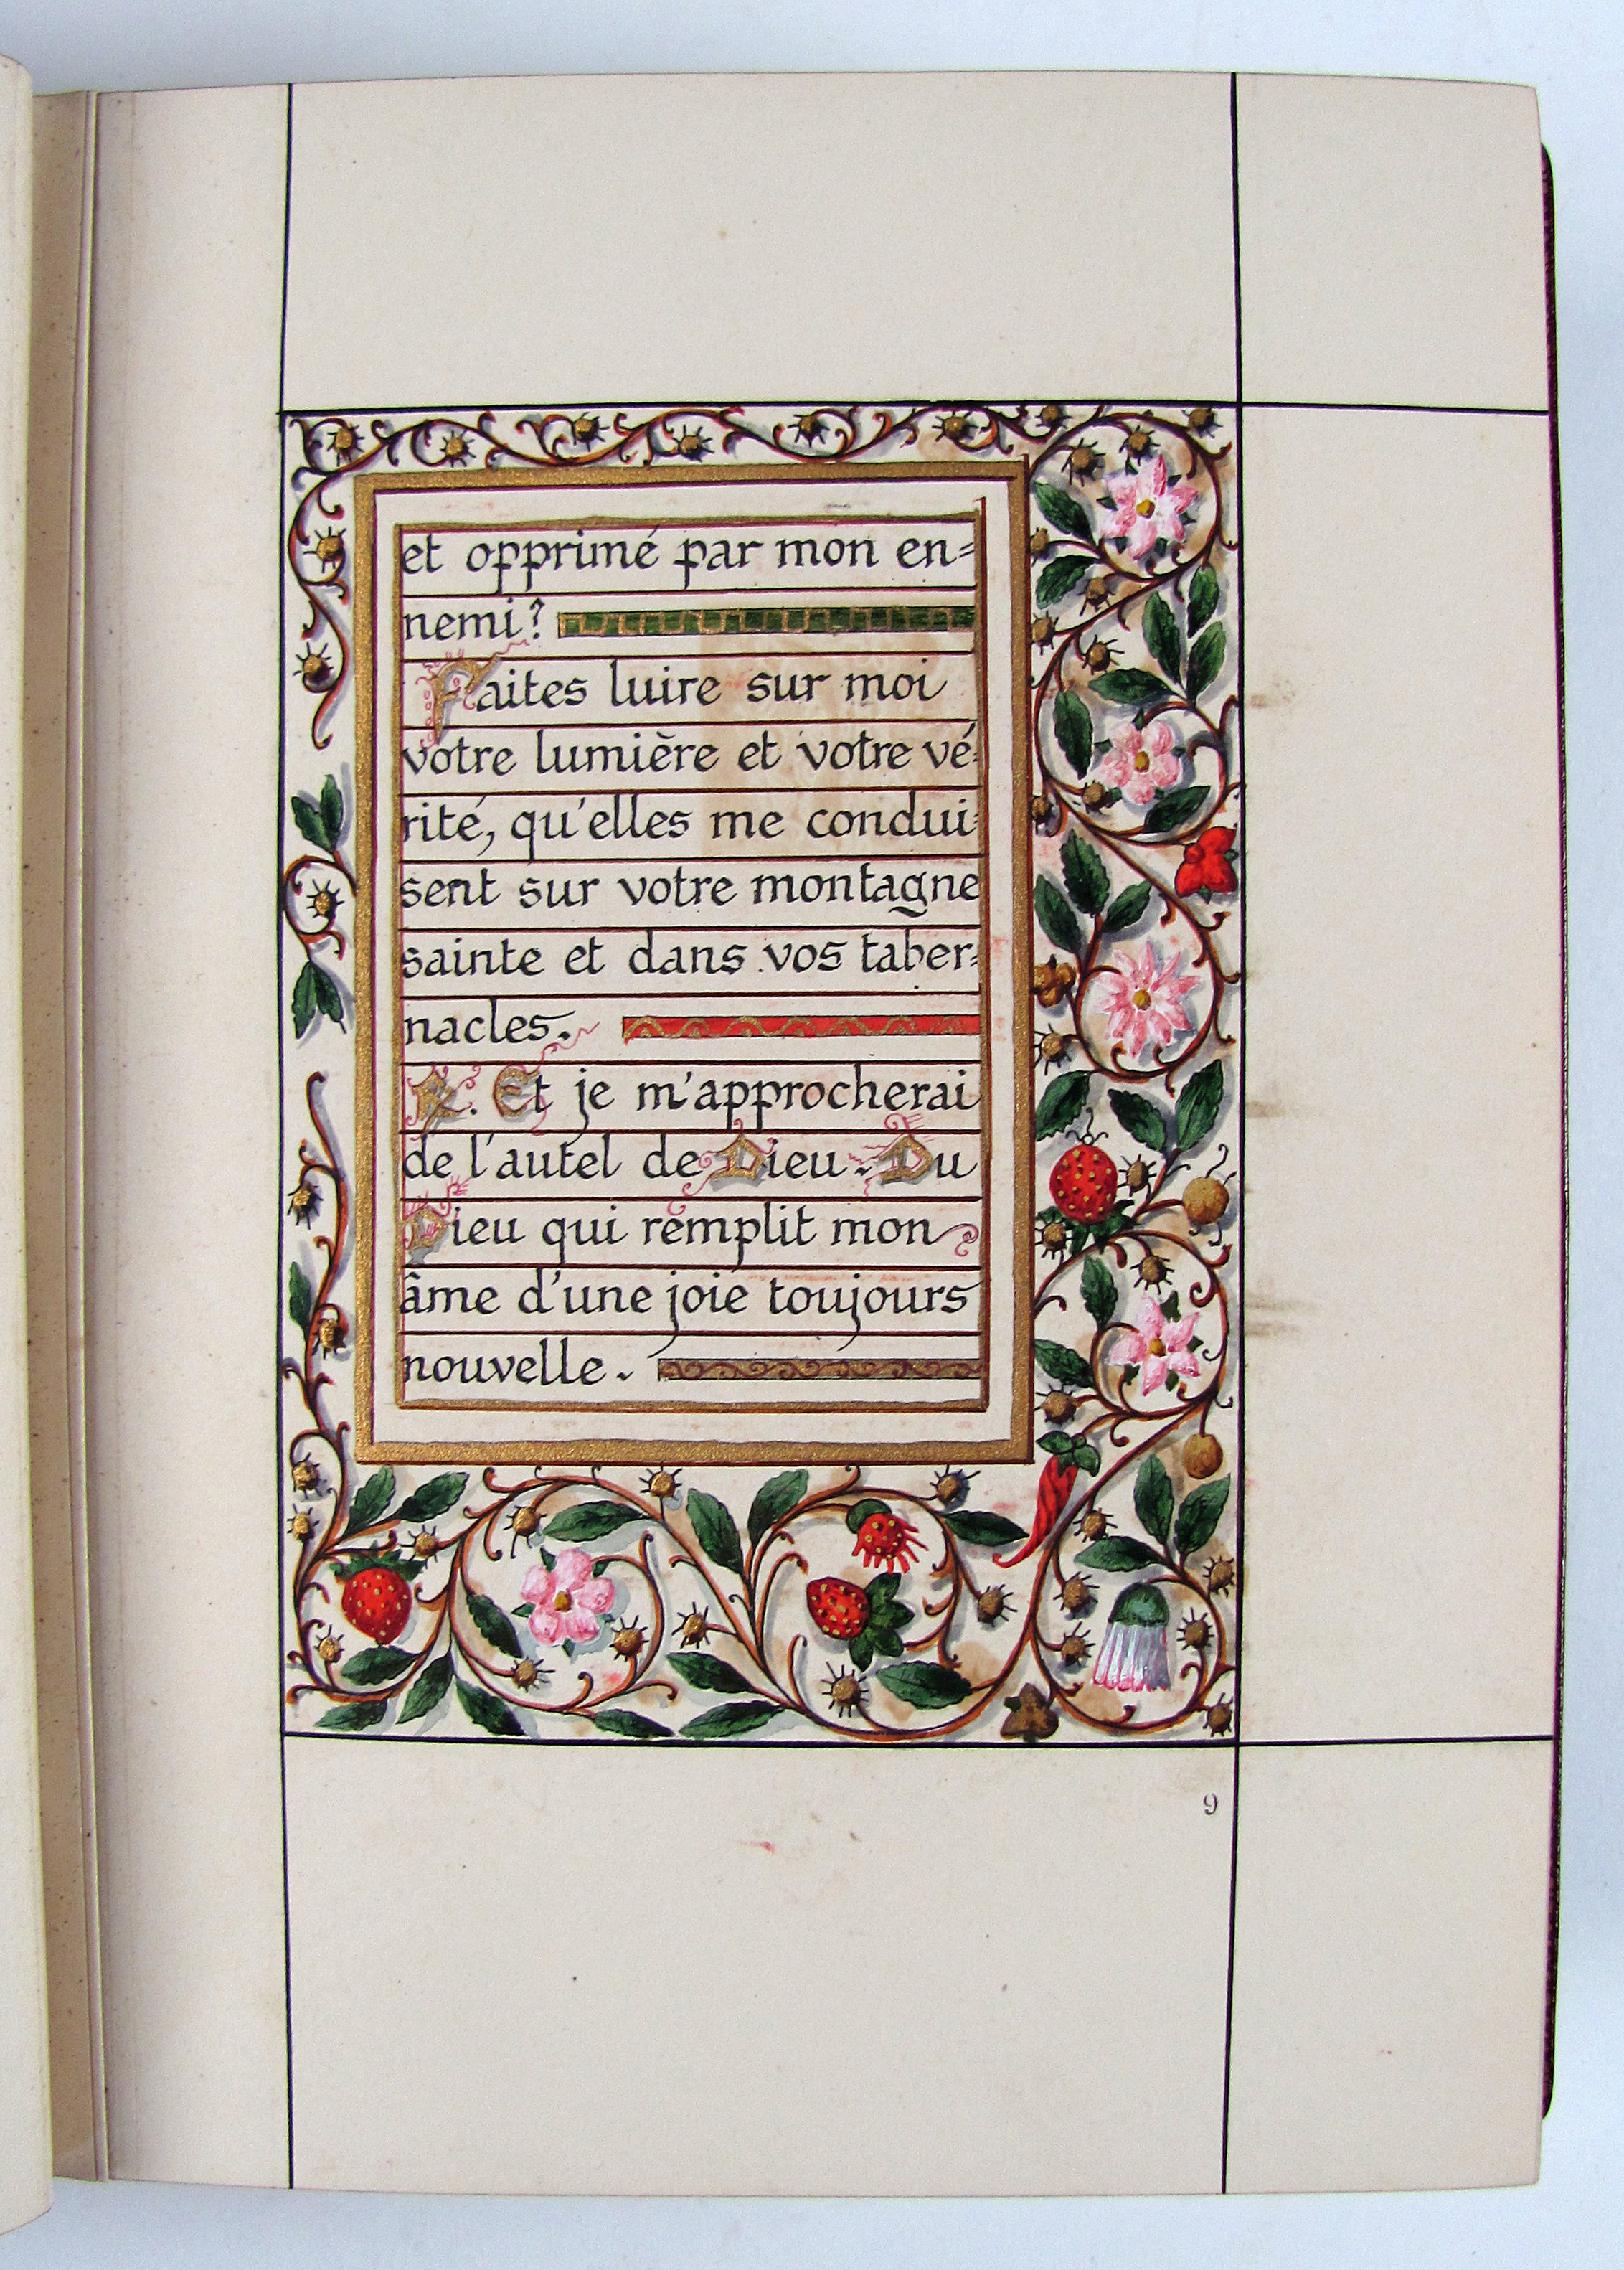 et opprimé par mon en=
nemi?
Faites luire sur moi
votre lumière et votre vé=
rité, qu'elles me condui=
sent sur votre montagne
sainte et dans vos taber=
nacles.
R. Et je m'approcherai
de l'autel de Dieu. Du
Dieu qui remplit mon
âme d'une joie toujours
nouvelle.
9